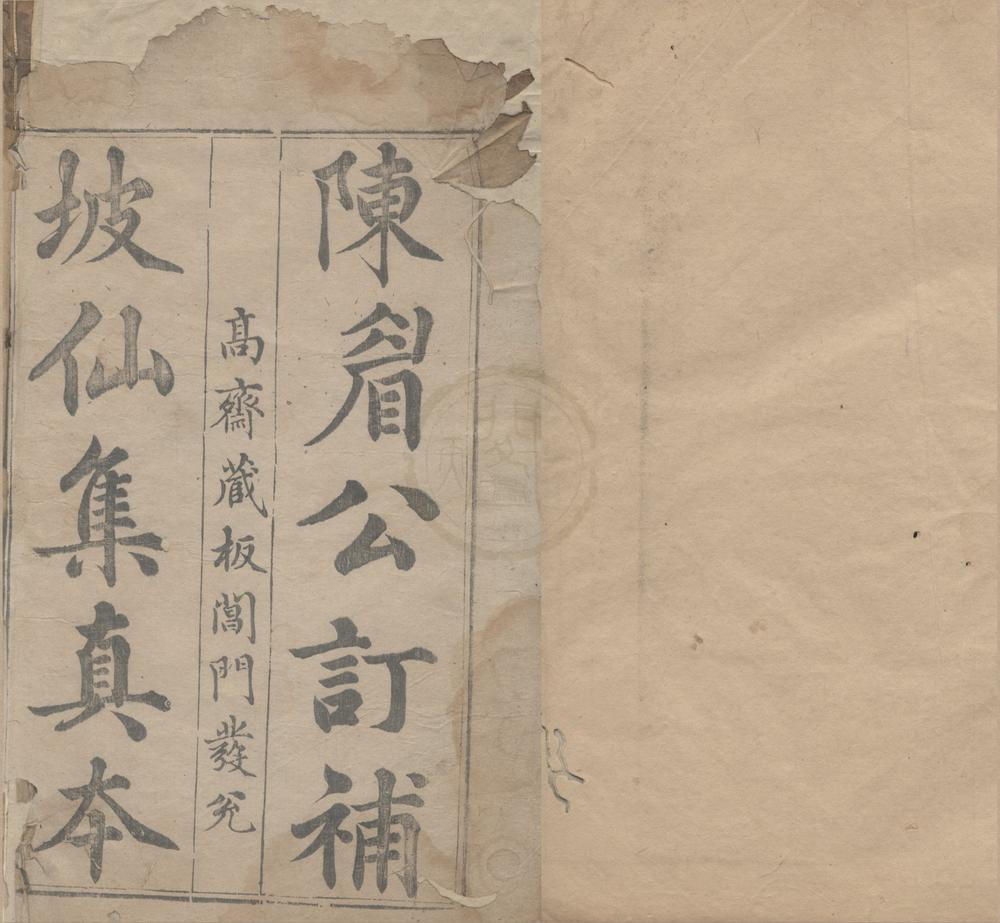 陳眉公訂補
髙齋藏板閶門發兊
坡仙集真本